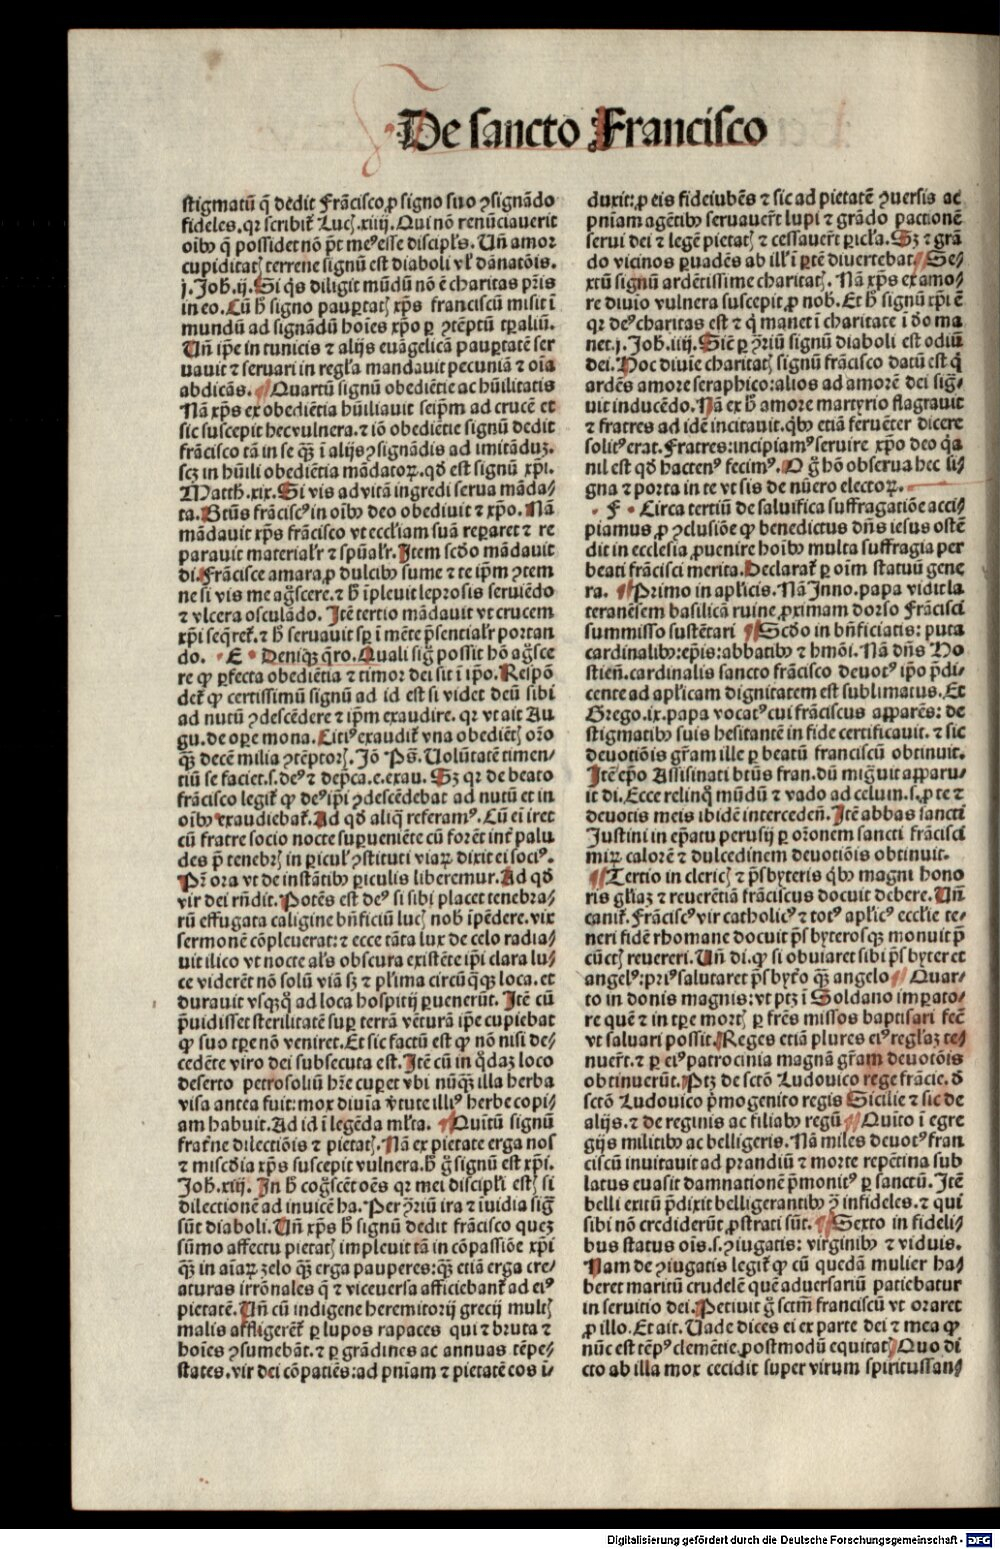 De sancto Francisco
stigmatū q̄ dedit Frācisco, ꝓ signo suo ꝯsignādo
fideles, qꝛ scribit᷑ Luc̃. xiiij. Qui nō renūciauerit
oībꝰ q̄ possidet nō pōt meꝰ esse discipl's. Uñ amor
cupiditatꝭ terrene signū est diaboli vl' dānatōis.
j. Joh̃. ij. Si q̄s diligit mūdū nō ē charitas pr̄is
in eo. Cū h̄ signo paupertatꝭ xp̄s franciscū misit ī
mundū ad signādū hoīes xp̄o ꝑ ꝯtēptū tp̄aliū.
Uñ ip̄e in tunicis ⁊ alijs euāgelicā paupertatē ser
uauit ⁊ seruari in regl'a mandauit pecuniā ⁊ oīa
abdicās. Quartū signū obediētie ac hūilitatis
Nā xp̄s ex obediētia hūiliauit seip̄m ad crucē et
sic suscepit hec vulnera. ⁊ iō obediētie signū dedit
frācisco tā in se qꝫ̄ ī alijs ꝯsignādis ad imitādū.
scꝫ in hūili obediētia mādatoꝝ. qd̄ est signū xp̄i.
Matth̃. xix. Si vis ad vitā ingredi serua māda/
ta. Btūs frāciscꝰ in oībꝰ deo obediuit ⁊ xp̄o. Nā
mādauit xp̄s frācisco vt eccl'iam suā reꝑaret ⁊ re
parauit material'r ⁊ sp̄ual'r. Item scd̄o mādauit
di. Frācisce amara, ꝓ dulcibꝰ sume ⁊ te ip̄m ꝯtem
ne si vis me ag̃scere. ⁊ h̄ īpleuit leprosis seruiēdo
⁊ vlcera osculādo. Itē tertio mādauit vt crucem
xp̄i seq̄ret᷑. ⁊ h̄ seruauit sp̄ ī mēte p̄sential'r portan
do. E Deniqꝫ q̄ro. Quali sig̃ possit hō ag̃sce
re ꝙ ꝑfecta obediētia ⁊ timor dei sit ī ip̄o. Respō
det᷑ ꝙ certissimū signū ad id est si videt deū sibi
ad nutū ꝯdescēdere ⁊ ip̄m exaudire. qꝛ vt ait Au
gu. de oꝑe mona. Citiꝰ exaudit᷑ vna obediētꝭ orō
qꝫ̄ decē milia ꝯtēptorꝭ. Iō Ps̄. Uolūtatē timen/
tiū se faciet. s. deꝰ ⁊ dep̄ca. e. exau. Sꝫ qꝛ de beato
frācisco legit᷑ ꝙ deꝰ ip̄i ꝯdescēdebat ad nutū et in
oībꝰ exaudiebat᷑. Ad qd̄ aliq̄ referamꝰ. Cū eī iret
cū fratre socio nocte suꝑueniēte cū forēt int̄ palu
des p̄ tenebrꝭ in ꝑicul' ꝯstituti viaꝝ dixit ei sociꝰ.
Pr̄ ora vt de instātibꝰ ꝑiculis liberemur. Ad qd̄
vir dei rn̄dit. Potēs est deꝰ si sibi placet tenebra/
rū effugata caligine bn̄ficiū lucꝭ nob̃ īpēdere. vix
sermonē cōpleuerat: ⁊ ecce tāta lux de celo radia/
uit ilico vt nocte al's obscura existēte ip̄i clara lu/
ce viderēt nō solū viā sꝫ ⁊ pl'ima circūq̄qꝫ loca. et
durauit vsqꝫq̄ ad loca hospitij ꝑuenerūt. Itē cū
p̄uidisset sterilitatē suꝑ terrā vēturā ip̄e cupiebat
ꝙ suo tp̄e nō veniret. Et sic factū est ꝙ nō nisi de/
cedēte viro dei subsecuta est. Itē cū in q̄daꝫ loco
deserto petrosoliū hr̄e cuꝑet vbi nūqꝫ̄ illa herba
visa antea fuit: mox diuīa v̄tute illiꝰ herbe copi/
am habuit. Ad id ī legēda ml'ta. Quītū signū
frat̄ne dilectiōis ⁊ pietatꝭ. Nā ex pietate erga nos
⁊ miscd̄ia xp̄s suscepit vulnera. h̄ g̃ signū est xp̄i.
Joh̃. xiij. In h̄ cog̃scēt oēs qꝛ mei discipl'i estꝭ si
dilectionē ad inuicē ha. Per ꝯ̄riū ira ⁊ īuidia sig̃
sūt diaboli. Uñ xp̄s h̄ signū dedit frācisco queꝫ
sūmo affectu pietatꝭ impleuit tā in cōpassiōe xp̄i
qꝫ̄ in aīaꝝ zelo qꝫ̄ erga pauperes: qꝫ̄ etiā erga cre/
aturas irrōnales q̄ ⁊ viceuersa afficiebant᷑ ad eiꝰ
pietatē. Uñ cū indigene heremitorij grecij multꝭ
malis affligerēt᷑ ꝑ lupos rapaces qui ⁊ bruta ⁊
hoīes ꝯsumebāt. ⁊ ꝑ grādines ac annuas tēpe/
states. vir dei cōpatiēs: ad pn̄iam ⁊ pietatē eos ī/
duxit: ꝓ eis fideiubēs ⁊ sic ad pietatē ꝯuersis ac
pn̄iam agētibꝰ seruauer̄t lupi ⁊ grādo pactionē
serui dei ⁊ legē pietatꝭ ⁊ cessauer̄t ꝑicl'a. Sꝫ ⁊ grā
do vicinos ꝑuadēs ab ill' ī ꝑtē diuertebat. Se/
xtū signū ardētissime charitatꝭ. Nā xp̄s ex amo/
re diuīo vulnera suscepit, ꝓ nob̃. Et h̄ signū xp̄i ē
qꝛ deꝰ charitas est ⁊ q̄ manet ī charitate ī d̄o ma
net. j. Joh̃. iiij. Sic̄ ꝑ ꝯ̄riū signū diaboli est odiū
dei. Hoc diuīe charitatꝭ signū frācisco datū est q̄
ardēs amore seraphico: alios ad amorē dei sig̃/
uit inducēdo. Nā ex h̄ amore martyrio flagrauit
⁊ fratres ad idē incitauit. q̄bꝰ etiā feruēter dicere
solitꝰ erat. Fratres: incipiamꝰ seruire xp̄o deo q̄a
nil est qd̄ hactenꝰ fecimꝰ. O g̃ hō obserua hec si/
gna ⁊ porta in te vt sis de nūero electoꝝ.
F Circa tertiū de saluifica suffragatiōe acci/
piamus, ꝓ ꝯclusiōe ꝙ benedictus dn̄s iesus ostē
dit in ecclesia, ꝓuenire hoībꝰ multa suffragia per
beati frācisci merita. Declarat᷑ ꝑ oīm statuū gene
ra. Primo in apl'icis. Nā Inno. papa vidit la
teranēsem basilicā ruine, ꝓximam dorso Frācisci
summisso sustētari Scd̄o in bn̄ficiatis: puta
cardinalibꝰ: ep̄is: abbatibꝰ ⁊ hmōi. Nā dn̄s Ho
stien̄. cardinalis sancto frācisco deuotꝰ ip̄o p̄di/
cente ad apl'icam dignitatem est sublimatus. Et
Grego. ix. papa vocatꝰ cui frāciscus apparēs: de
stigmatibꝰ suis hesitantē in fide certificauit. ⁊ sic
deuotiōis gr̄am ille ꝑ beatū franciscū obtinuit.
Itē ep̄o Assisinati btūs fran. dū mig̃uit apparu/
it di. Ecce relinq̄ mūdū ⁊ vado ad celum. s, ꝓ te ⁊
deuotis meis ibidē interceden̄. Itē abbas sancti
Justini in ep̄atu perusij ꝑ orōnem sancti frācisci
miꝝ calorē ⁊ dulcedinem deuotiōis obtinuit.
Tertio in clericꝭ ⁊ p̄sbyteris q̄bꝰ magni hono
ris gl'iaꝫ ⁊ reuerētiā frāciscus docuit debere. Uñ
canit᷑. Frāciscꝰ vir catholicꝰ ⁊ totꝰ apl'icꝰ eccl'ie te/
neri fidē rhomane docuit p̄sbyterosqꝫ monuit p̄
cūctꝭ reuereri. Uñ di. ꝙ si obuiaret sibi p̄sbyter et
angelꝰ: priꝰ salutaret p̄sbyt̄o qꝫ̄ angelo Quar/
to in donis magnis: vt ptꝫ ī Soldano imperato/
re quē ⁊ in tp̄e mortꝭ ꝑ fr̄es missos baptisari fec̄
vt saluari possit. Reges etiā plures eiꝰ regl'aꝫ te/
nuer̄t. ⁊ ꝑ eiꝰ patrocinia magnā gr̄am deuotōis
obtinuerūt. Ptꝫ de sctō Ludouico rege frācie. d̄
sctō Ludouico p̄mogenito regis Sicilie ⁊ sic de
alijs. ⁊ de reginis ac filiabꝰ regū Quīto ī egre
gijs militibꝰ ac belligeris. Nā miles deuotꝰ fran
ciscū inuitauit ad prandiū ⁊ morte repētina sub
latus euasit damnationē p̄monitꝰ ꝑ sanctū. Itē
belli exitū p̄dixit belligerantibꝰ ꝯ̄ infideles. ⁊ qui
sibi nō crediderūt, ꝓstrati sūt. Sexto in fideli/
bus status oīs. s. ꝯiugatis: virginibꝰ ⁊ viduis.
Nam de ꝯiugatis legit᷑ ꝙ cū quedā mulier ha/
beret maritū crudelē quē aduersariū patiebatur
in seruitio dei. Petiuit g̃ sctm̄ franciscū vt oraret
ꝓ illo. Et ait. Uade dices ei ex parte dei ⁊ mea ꝙ
nūc est tēpꝰ clemētie, ꝓstmodū equitatꝭ Quo di
cto ab illa mox cecidit super virum spiritussan/
Digitalisierung gefördert durch die Deutsche Forschungsgemeinschaft - DFG